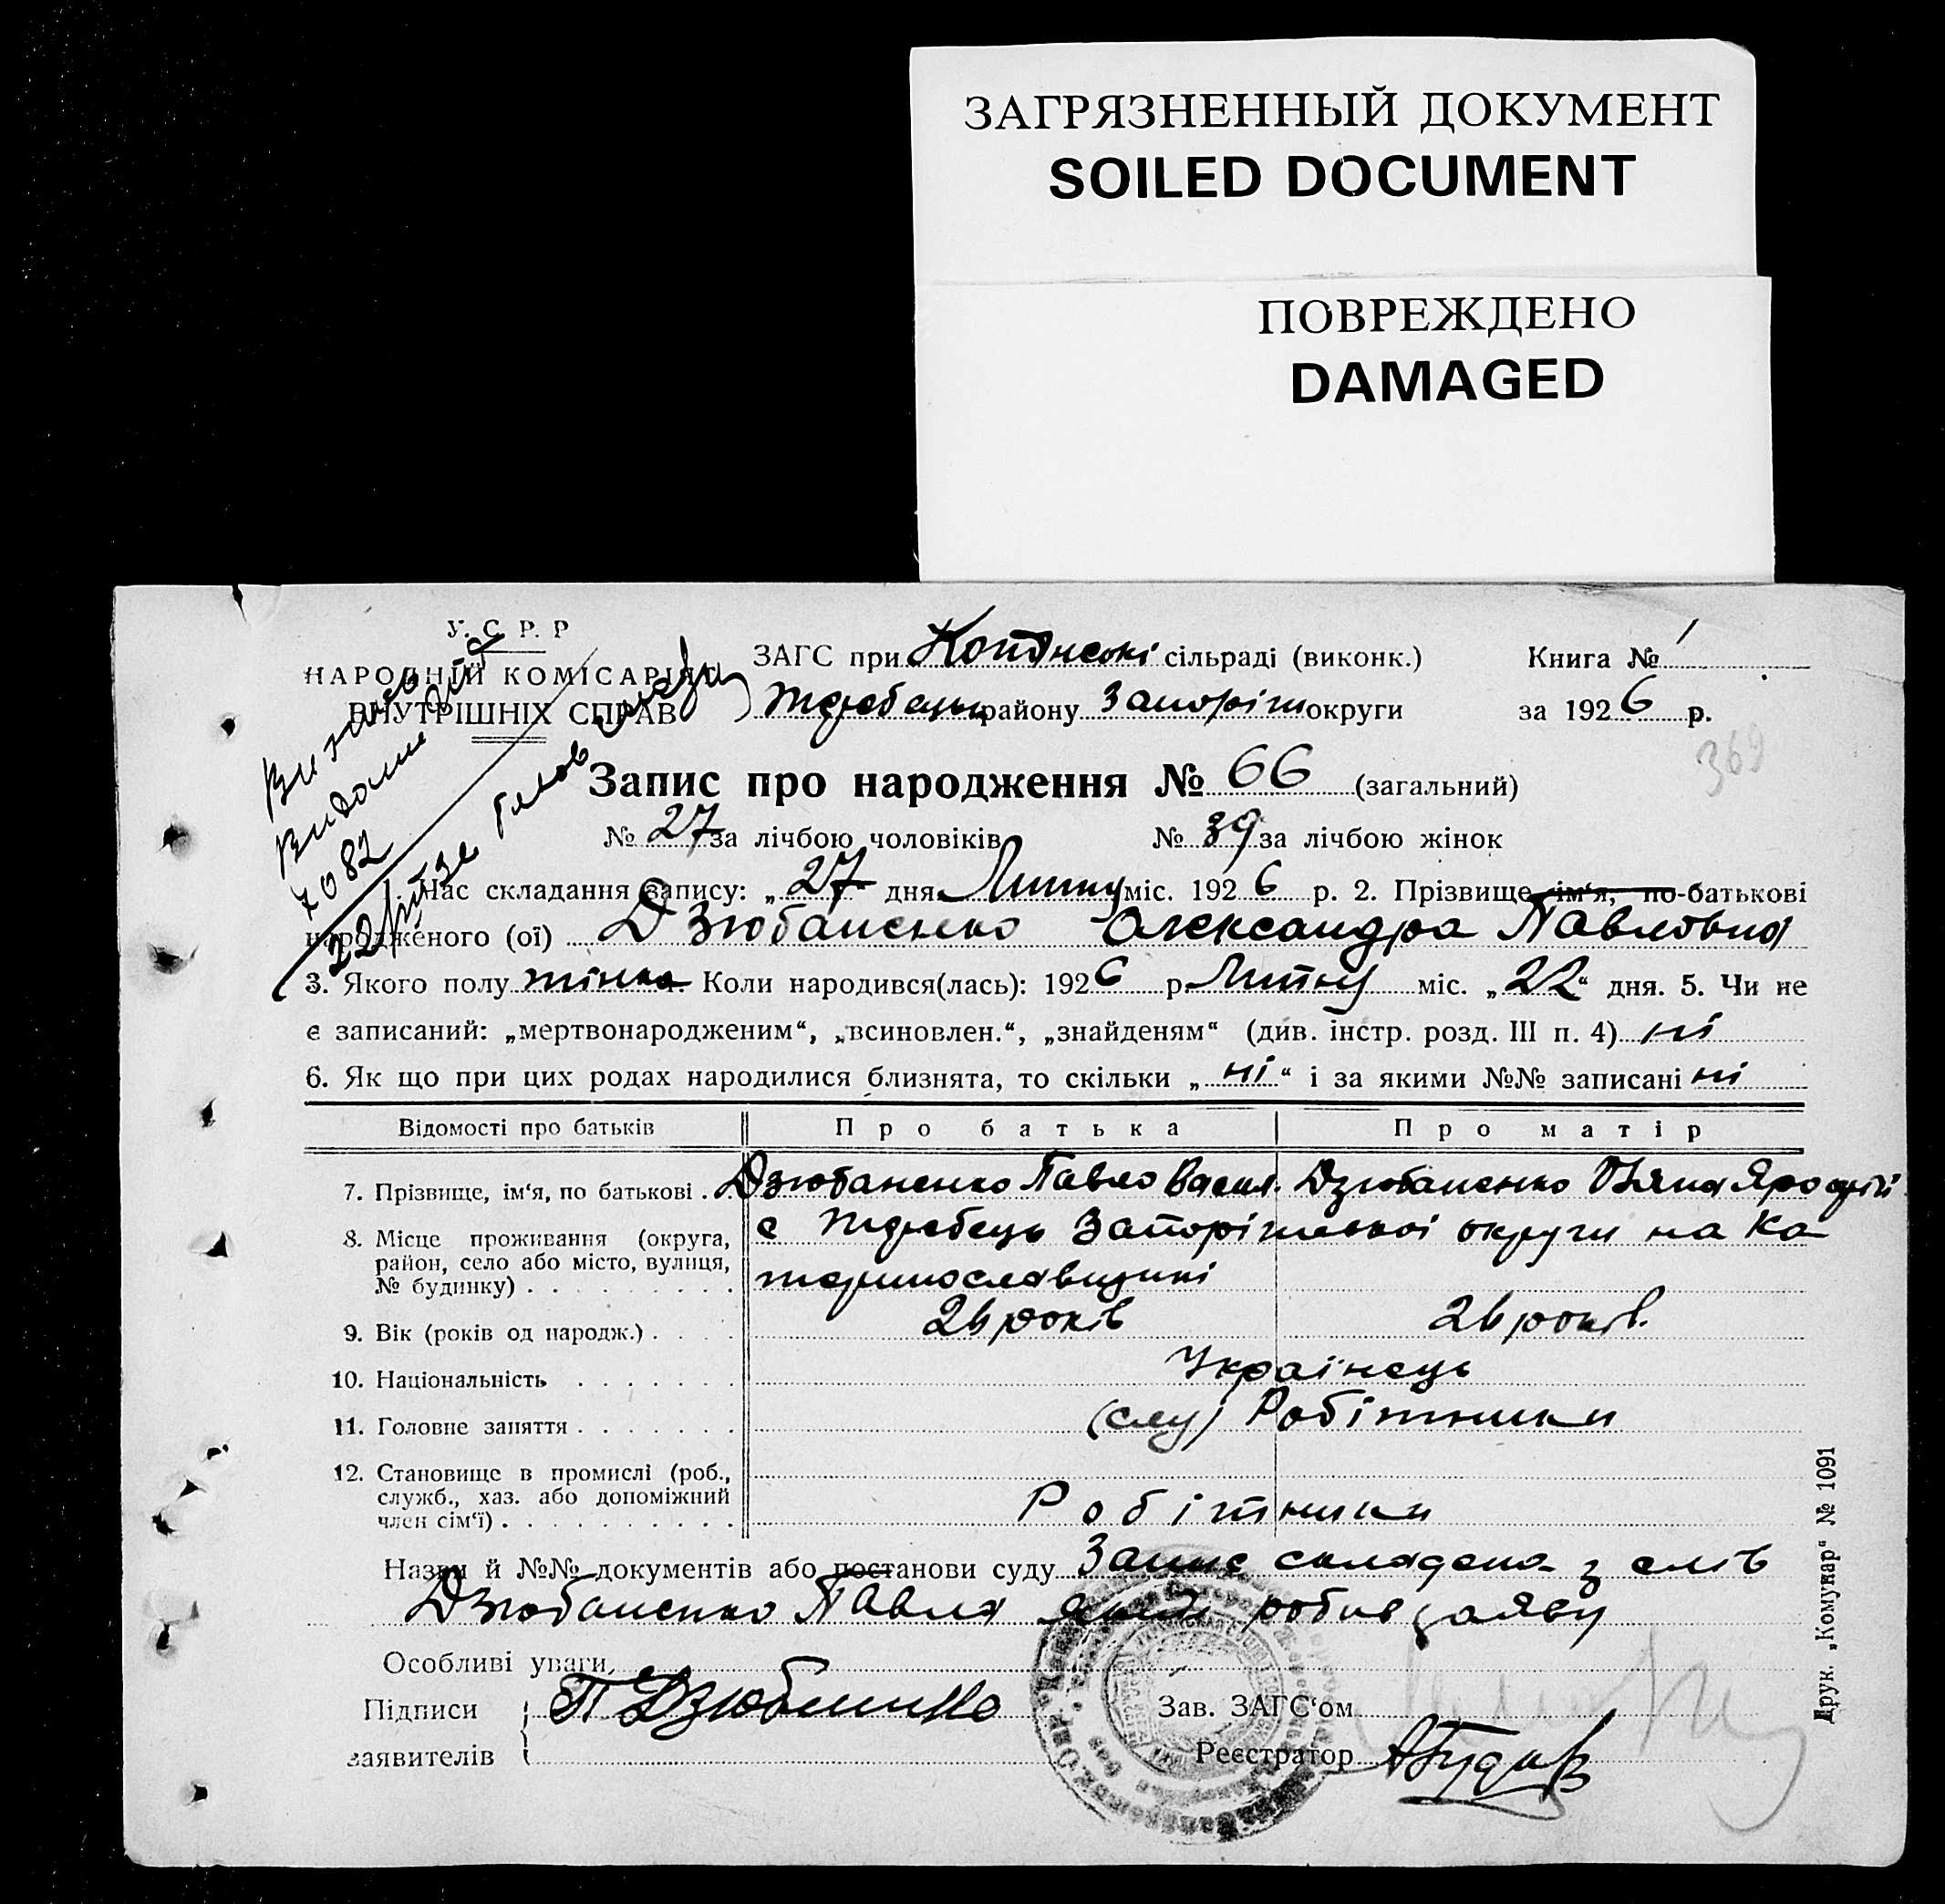 ЗАГРЯЗНЕННЫЙ ДОКУМЕНТ
SOILED DOCUMENT
ПОВРЕЖДЕНО
DAMAGED
У. С. Р. Р
НАРОДНІЙ КОМІСАРІЯТ
ВНУТРІШНІХ СПРАВ
ЗАГС при сільраді (виконк.)
Книга № 1
району Запоріж округи
за 1926 р.
369
7082
Запис про народження № 66 (загальний)
№ 27 за лічбою чоловіків № 39 за лічбою жінок
1. Час складання запису: „27 дня міс. 1926 р. 2. Прізвище ім‘я, по-батькові
народженого (ої) Дзюбаненко Олександра Павловна
3. Якого полу жінка. Коли народився(лась): 1926 р. міс. „22“ дня. 5. Чи не
є записаний: „мертвонародженим“, „всиновлен.“, „знайденям“ (див. інстр. розд. III п. 4) ні
6. Як що при цих родах народилися близнята, то скільки „ні“ і за якими №№ записані ні
Відомості про батьків Про батька Про матір
7. Прізвище, ім‘я, по батькові . Дзюбаненко Павло Васил. Дзюбаненко
8. Місце проживання (округа, район, село або місто, вулиця, № будинку) с Жеребець Запоріжської округи на Ка-
теринославщині
9. Вік (років од народж.) 26 років 26 років.
10. Національність Українець
11. Головне заняття (слу) Робітники
12. Становище в промислі (роб., служб., хаз. або допоміжний член сім‘ї) Робітники
Назви й №№ документів або постанови суду Запис складена з слів
Дзюбаненко Павла який робив заяву
Особливі уваги
Підписи
заявителів
П Дзюбаненко
Зав. ЗАГС‘ом
Реєстратор
Друк. „Комунар“ № 1091